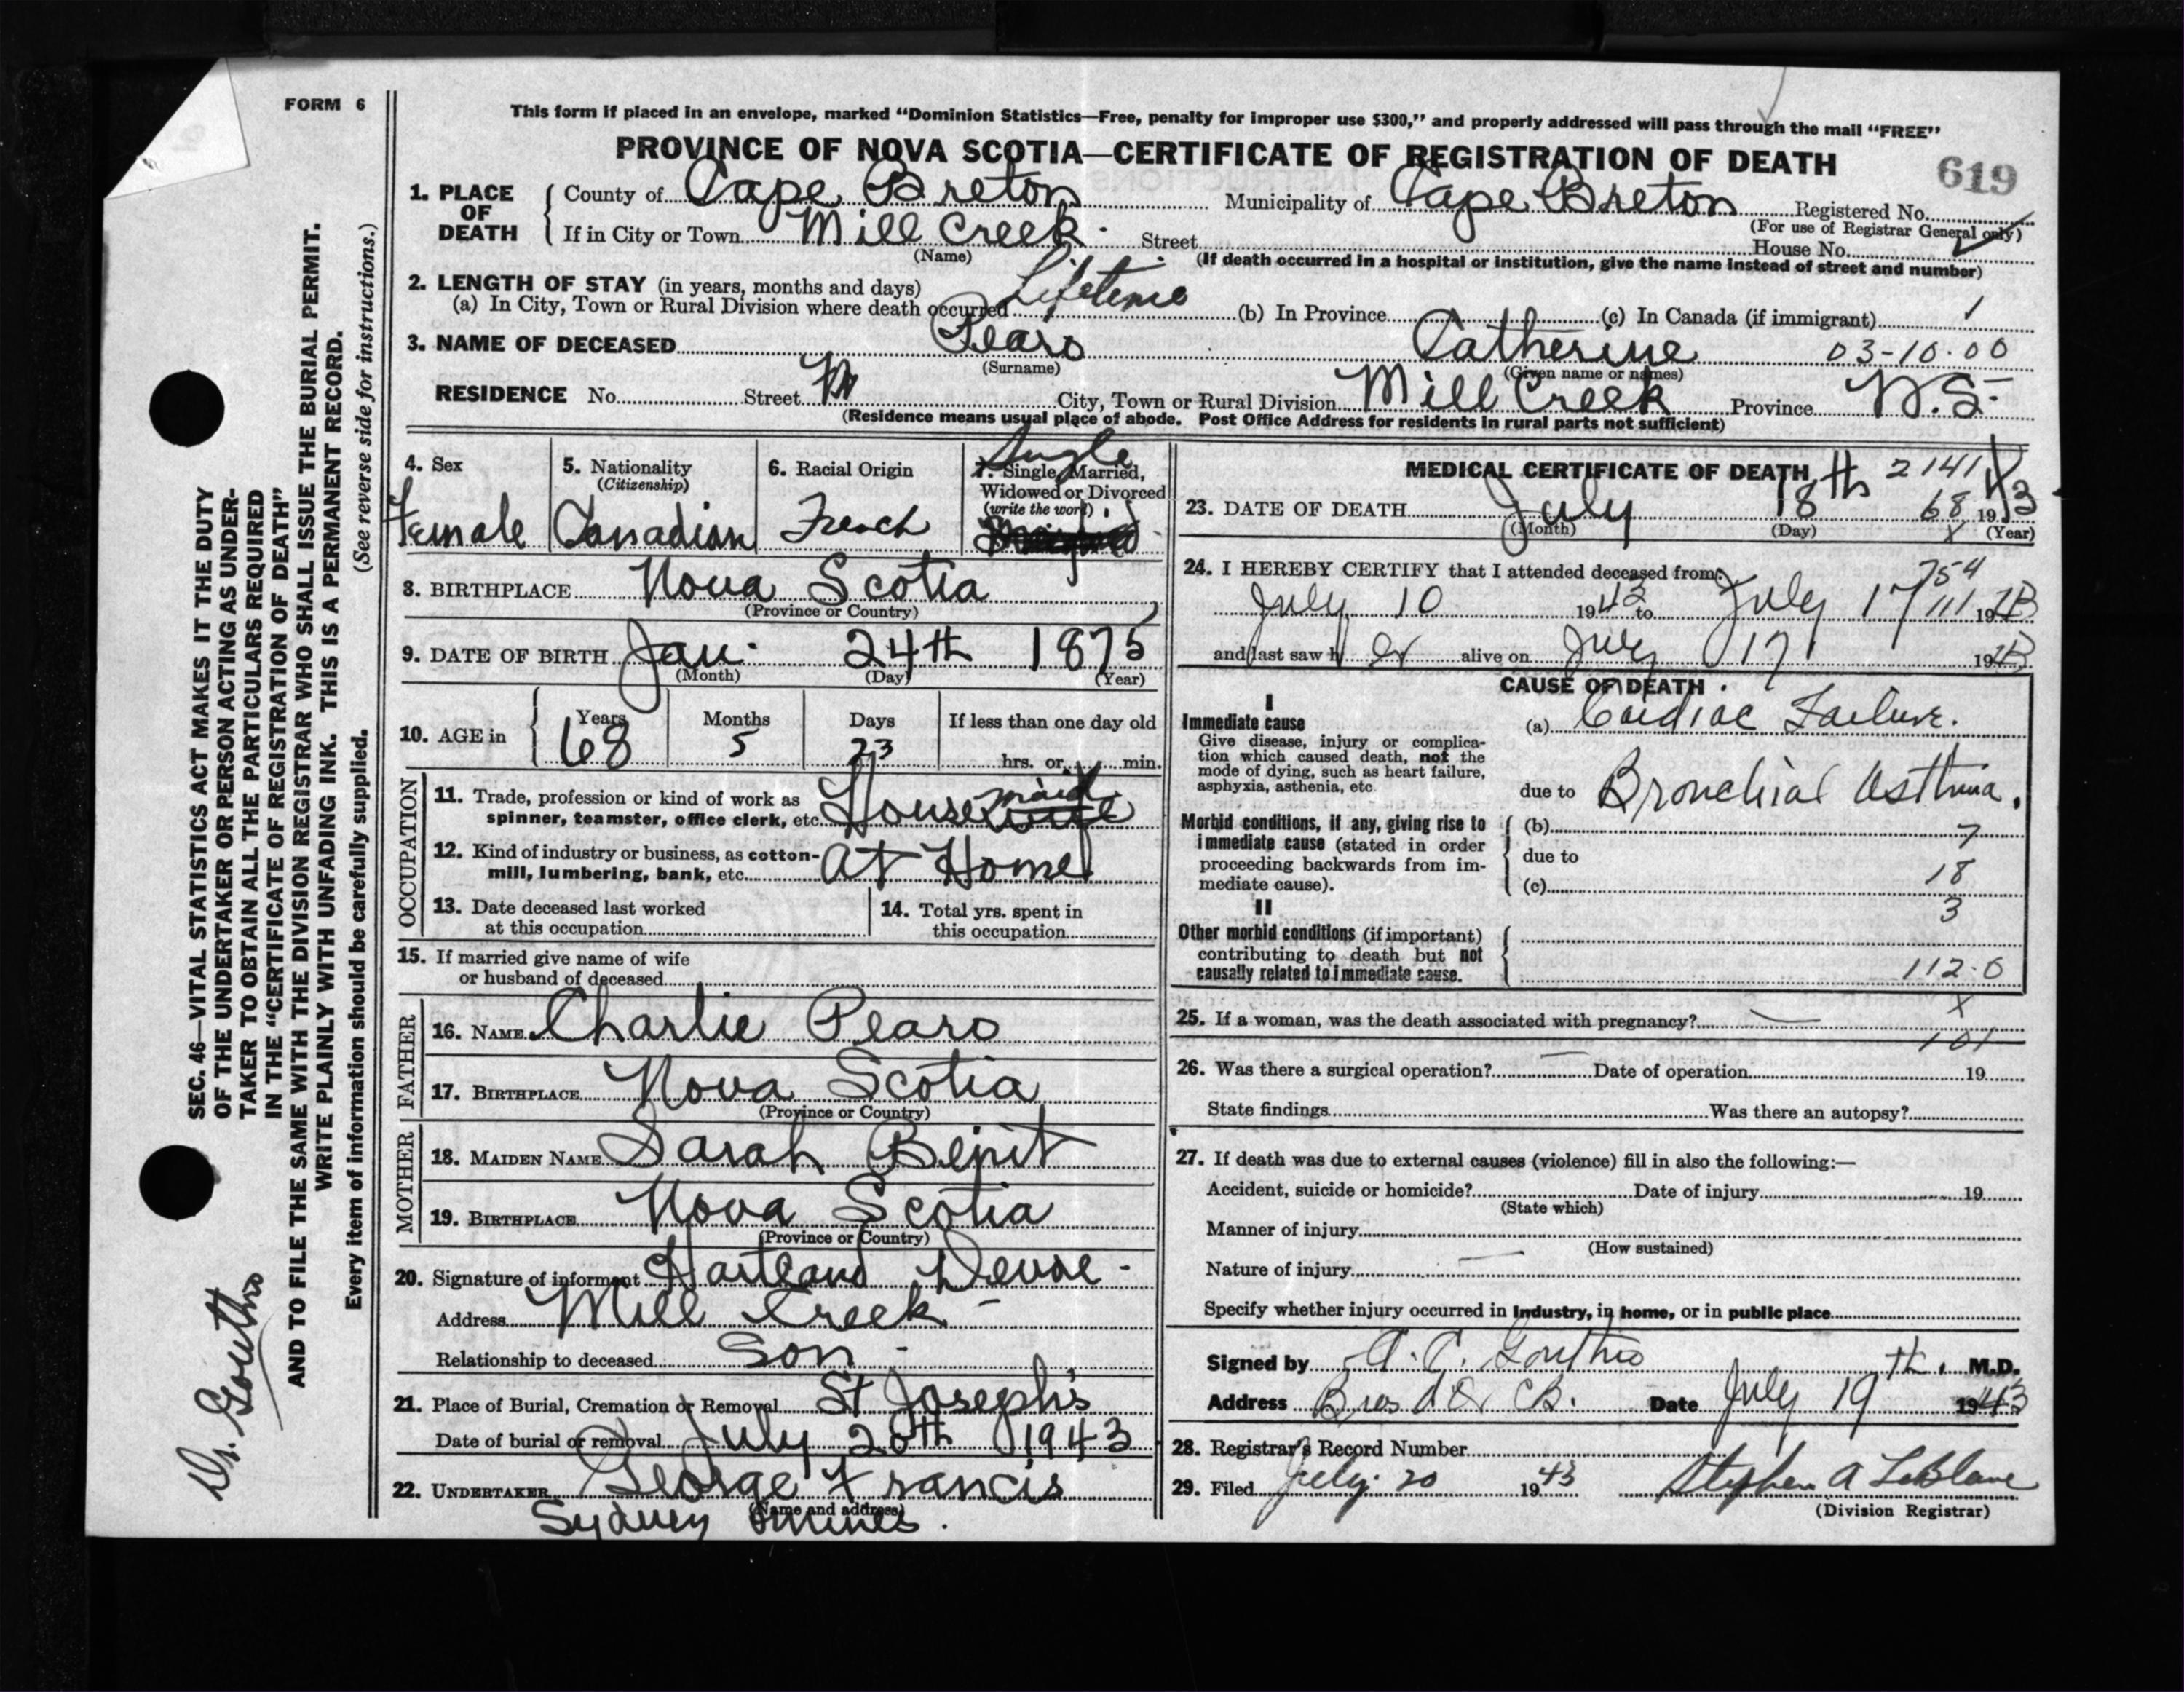 FORM 6
This form if placed in an envelope, marked "Dominion Statistics—Free, penalty for improper use $300," and properly addressed will pass through the mail "FREE"
PROVINCE OF NOVA SCOTIA—CERTIFICATE OF REGISTRATION OF DEATH
619
1. PLACE OF DEATH { County of Cape Breton Municipality of Cape Breton Registered No.
(For use of Registrar General only)
If in City or Town Mill Creek. Street House No.
(Name) (If death occurred in a hospital or institution, give the name instead of street and number)
2. LENGTH OF STAY (in years, months and days)
(a) In City, Town or Rural Division where death occurred Lifetime (b) In Province (c) In Canada (if immigrant) 1
3. NAME OF DECEASED Pearo Catherine 03-10-00
(Surname) (Given name or names)
RESIDENCE No. Street City, Town or Rural Division Mill Creek Province N.S.
(Residence means usual place of abode. Post Office Address for residents in rural parts not sufficient)
4. Sex Female
5. Nationality (Citizenship) Canadian
6. Racial Origin French
7. Single, Married, Widowed or Divorced (write the word) Single
8. BIRTHPLACE Nova Scotia
(Province or Country)
9. DATE OF BIRTH Jan. 24th 1875
(Month) (Day) (Year)
10. AGE in { Years 68 Months 5 Days 23 If less than one day old
hrs. or min.
OCCUPATION
11. Trade, profession or kind of work as spinner, teamster, office clerk, etc. House wife maid
12. Kind of industry or business, as cotton-mill, lumbering, bank, etc. At Home
13. Date deceased last worked at this occupation
14. Total yrs. spent in this occupation
15. If married give name of wife or husband of deceased
FATHER
16. NAME Charlie Pearo
17. BIRTHPLACE Nova Scotia
(Province or Country)
MOTHER
18. MAIDEN NAME Sarah
19. BIRTHPLACE Nova Scotia
(Province or Country)
20. Signature of informant Hartland Devoe -
Address Mill Creek -
Relationship to deceased Son -
21. Place of Burial, Cremation or Removal St Joseph's
Date of burial or removal July 20th 1943
22. UNDERTAKER George Francis
(Name and address)
Sydney Mines.
MEDICAL CERTIFICATE OF DEATH
2141
23. DATE OF DEATH July 18th 68 1943
(Month) (Day) (Year)
X
24. I HEREBY CERTIFY that I attended deceased from:
754
July 10 1943 to July 17 111 1943
and last saw her alive on July 17 1943
CAUSE OF DEATH
I
Immediate cause
Give disease, injury or complication which caused death, not the mode of dying, such as heart failure, asphyxia, asthenia, etc
(a) Cardiac Failure.
due to Bronchial Asthma.
Morbid conditions, if any, giving rise to immediate cause (stated in order proceeding backwards from immediate cause).
(b) 7
due to
18
(c)
3
II
Other morbid conditions (if important) contributing to death but not causally related to immediate cause.
112.0
X
25. If a woman, was the death associated with pregnancy? —
101
26. Was there a surgical operation? — Date of operation 19
State findings Was there an autopsy?
27. If death was due to external causes (violence) fill in also the following:—
Accident, suicide or homicide? Date of injury 19
(State which)
Manner of injury
(How sustained)
Nature of injury
Specify whether injury occurred in Industry, in home, or in public place
Signed by A. C. Gouthro M.D.
Address Bras d'Or CB. Date July 19th. 1943
28. Registrar's Record Number
29. Filed July 20 1943 Stephen A LeBlanc
(Division Registrar)
SEC. 46—VITAL STATISTICS ACT MAKES IT THE DUTY
OF THE UNDERTAKER OR PERSON ACTING AS UNDER-
TAKER TO OBTAIN ALL THE PARTICULARS REQUIRED
IN THE "CERTIFICATE OF REGISTRATION OF DEATH"
AND TO FILE THE SAME WITH THE DIVISION REGISTRAR WHO SHALL ISSUE THE BURIAL PERMIT.
WRITE PLAINLY WITH UNFADING INK. THIS IS A PERMANENT RECORD.
Every item of information should be carefully supplied. (See reverse side for instructions.)
Dr. Gouthro